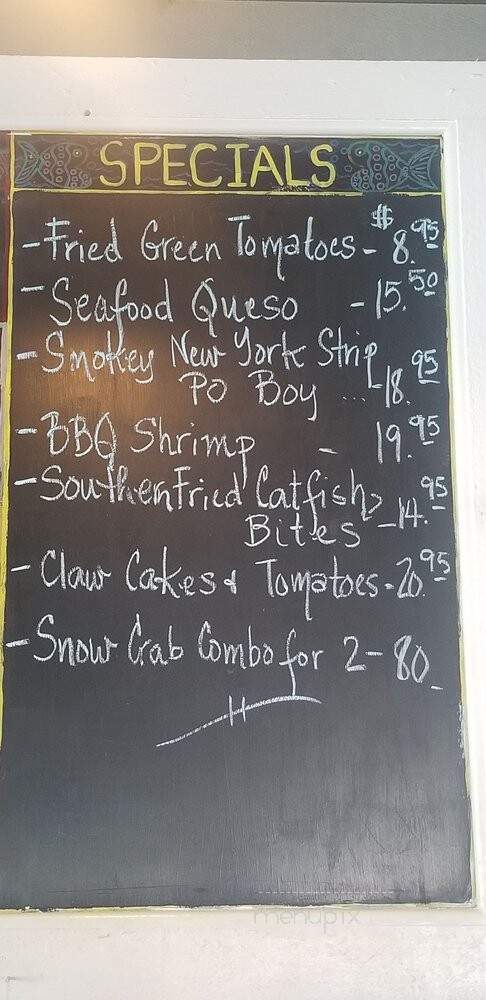 SPECIALS
- Fried Green Tomatoes - $8.95
- Seafood Queso - 15.50
- Smokey New York Strip
Po Boy ... - 18.95
- BBQ Shrimp - 19.95
- Southern Fried Catfish
Bites - 14.95
- Claw Cakes & Tomatoes - 20.95
- Snow Crab Combo for 2 - 80
menupix